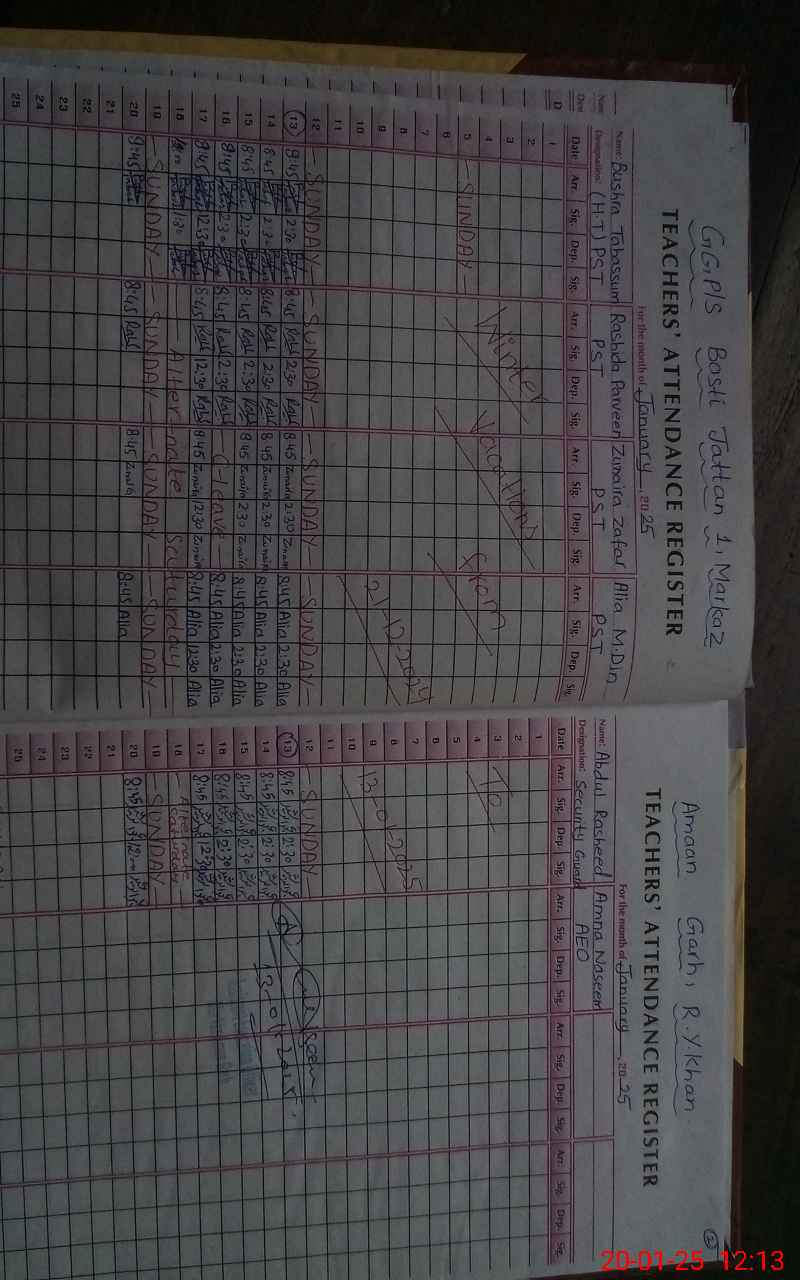 G.G.P/S Basti Jattan 1, Markaz
TEACHERS' ATTENDANCE REGISTER
For the month of January, 2025
Name: Bushra Tabassum Rashida Parveen Zunaira Zafar Alia M.Din
Designation: (H.T) PST PST PST PST
Date Arr. Sig. Dep. Sig. Arr. Sig. Dep. Sig. Arr. Sig. Dep. Sig. Arr. Sig. Dep. Sig.
1
2
3
4
5 - SUNDAY -
6
7
8
9
10
11
Winter Vacations from
21-12-2024
12 - SUNDAY - - SUNDAY - - SUNDAY - - SUNDAY -
13 8:45 2:30 8:45 Rash 2:30 Rash 8:45 Zunaira 2:30 8:45 Alia 2:30 Alia
14 8:45 2:30 8:45 Rash 2:30 Rash 8:45 Zunaira 2:30 Zunaira 8:45 Alia 2:30 Alia
15 8:45 2:30 8:45 Rash 2:30 Rash 8:45 Zunaira 2:30 Zunaira 8:45 Alia 2:30 Alia
16 8:45 2:30 8:45 Rash 2:30 Rash - C-leave - 8:45 Alia 2:30 Alia
17 8:45 12:30 8:45 Rash 12:30 Rash 8:45 Zunaira 12:30 Zunaira 8:45 Alia 12:30 Alia
18 1:30 - Alternate Saturday
19 - SUNDAY - - SUNDAY - - SUNDAY - - SUNDAY -
20 8:45 8:45 Rash 8:45 8:45 Alia
21
22
23
24
25
Amaan Garh, R.Y.Khan.
TEACHERS' ATTENDANCE REGISTER
For the month of January, 2025
Name: Abdul Rasheed Amna Naseem
Designation: Security Guard AEO
Date Arr. Sig. Dep. Sig. Arr. Sig. Dep. Sig. Arr. Sig. Dep. Sig. Arr. Sig. Dep. Sig.
1
2
3
4
5
6
7
8
9
10
11
To
13-01-2025
12 - SUNDAY -
13 8:45 2:30
14 8:45 2:30
15 8:45 2:30
16 8:45 2:30
17 8:45 12:30
18 - Alternate Saturday -
19 - SUNDAY -
20 8:45
21
22
23
24
25
13-01-2025
20-01-25 12:13